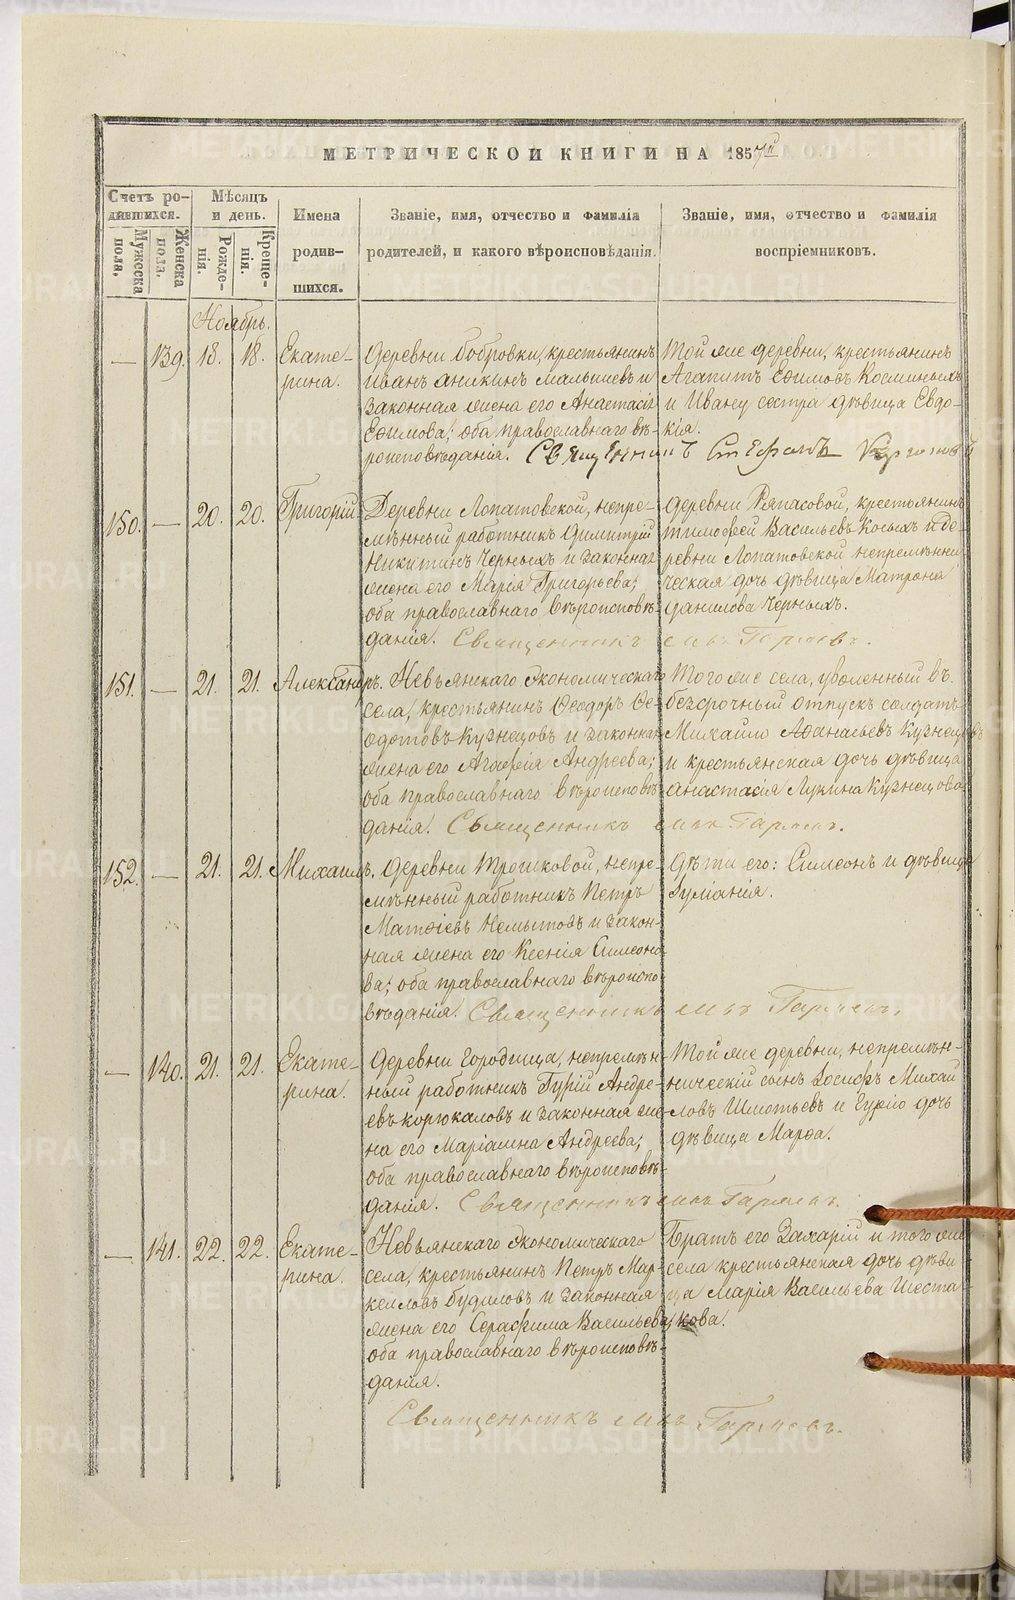 МЕТРИЧЕСКОЙ КНИГИ НА 1857й
Счетъ ро-
дившихся.
Мѣсяцъ
и день.
Имена
родив-
шихся.
Званіе, имя, отчество и фамилія
родителей, и какого вѣроисповѣданія.
Званіе, имя, отчество и фамилія
воспріемниковъ.
Мужеска
пола.
Женска
пола.
Рожде-
нія.
Креще-
нія.
Ноябрь.
— 139. 18. 18.
Екате-
рина.
Деревни Бобровки, крестьянинъ
Иванъ Аникинъ Малышевъ и
законная жена его Анастасія
Ефимова; оба православнаго вѣ-
роисповѣданія.
Той же деревни, крестьянинъ
Агапитъ Ефимовъ Косминыхъ
и Ивану сестра дѣвица Евдо-
кія.
Священникъ Стефанъ
150. — 20. 20.
Григорій
Деревни Лопатовской, непре-
мѣнный работникъ Димитрій
Никитинъ Черныхъ и законная
жена его Марія Григорьева;
оба православнаго вѣроисповѣ-
данія.
Деревни Ряпасовой, крестьянинъ
Тимофей Васильевъ Косыхъ и де-
ревни Лопатовской непремѣнни-
ческая дочь дѣвица Матрона
Данилова Черныхъ.
Священникъ
151. — 21. 21.
Александръ.
Невьянскаго Экономическаго
села, крестьянинъ Ѳеодоръ Ѳе-
одотовъ Кузнецовъ и законная
жена его Агафія Андреева;
оба православнаго вѣроисповѣ-
данія.
Того же села, уволенный въ
безсрочный отпускъ солдатъ
Михайло Аѳанасьевъ Кузнецовъ
и крестьянская дочь дѣвица
Анастасія Лукина Кузнецова
Священникъ
152. — 21. 21.
Михаилъ.
Деревни Трошковой, непре-
мѣнный работникъ Петръ
Матѳіевъ Немытовъ и закон-
ная жена его Ксенія Симеоно-
ва; оба православнаго вѣроиспо-
вѣданія.
Дѣти его: Симеонъ и дѣвица
Іуліанія.
Священникъ
— 140. 21. 21.
Екате-
рина.
Деревни Городища, непремѣн-
ный работникъ Гурій Андре-
евъ Корюкаловъ и законная же-
на его Маріамна Андреева;
оба православнаго вѣроисповѣ-
данія.
Той же деревни, непремѣн-
ническій сынъ Іосифъ Михай
ловъ Шмотьевъ и Гурію дочь
дѣвица Марѳа.
Священникъ
— 141. 22. 22.
Екате-
рина.
Невьянскаго Экономическаго
села, крестьянинъ Петръ Мар-
келловъ Будиловъ и законная
жена его Серафима Васильева;
оба православнаго вѣроисповѣ-
данія.
Братъ его Захарій и того же
села крестьянская дочь дѣви
ца Марія Васильева Шеста-
кова.
Священникъ
METRIKI.GASO-URAL.RU